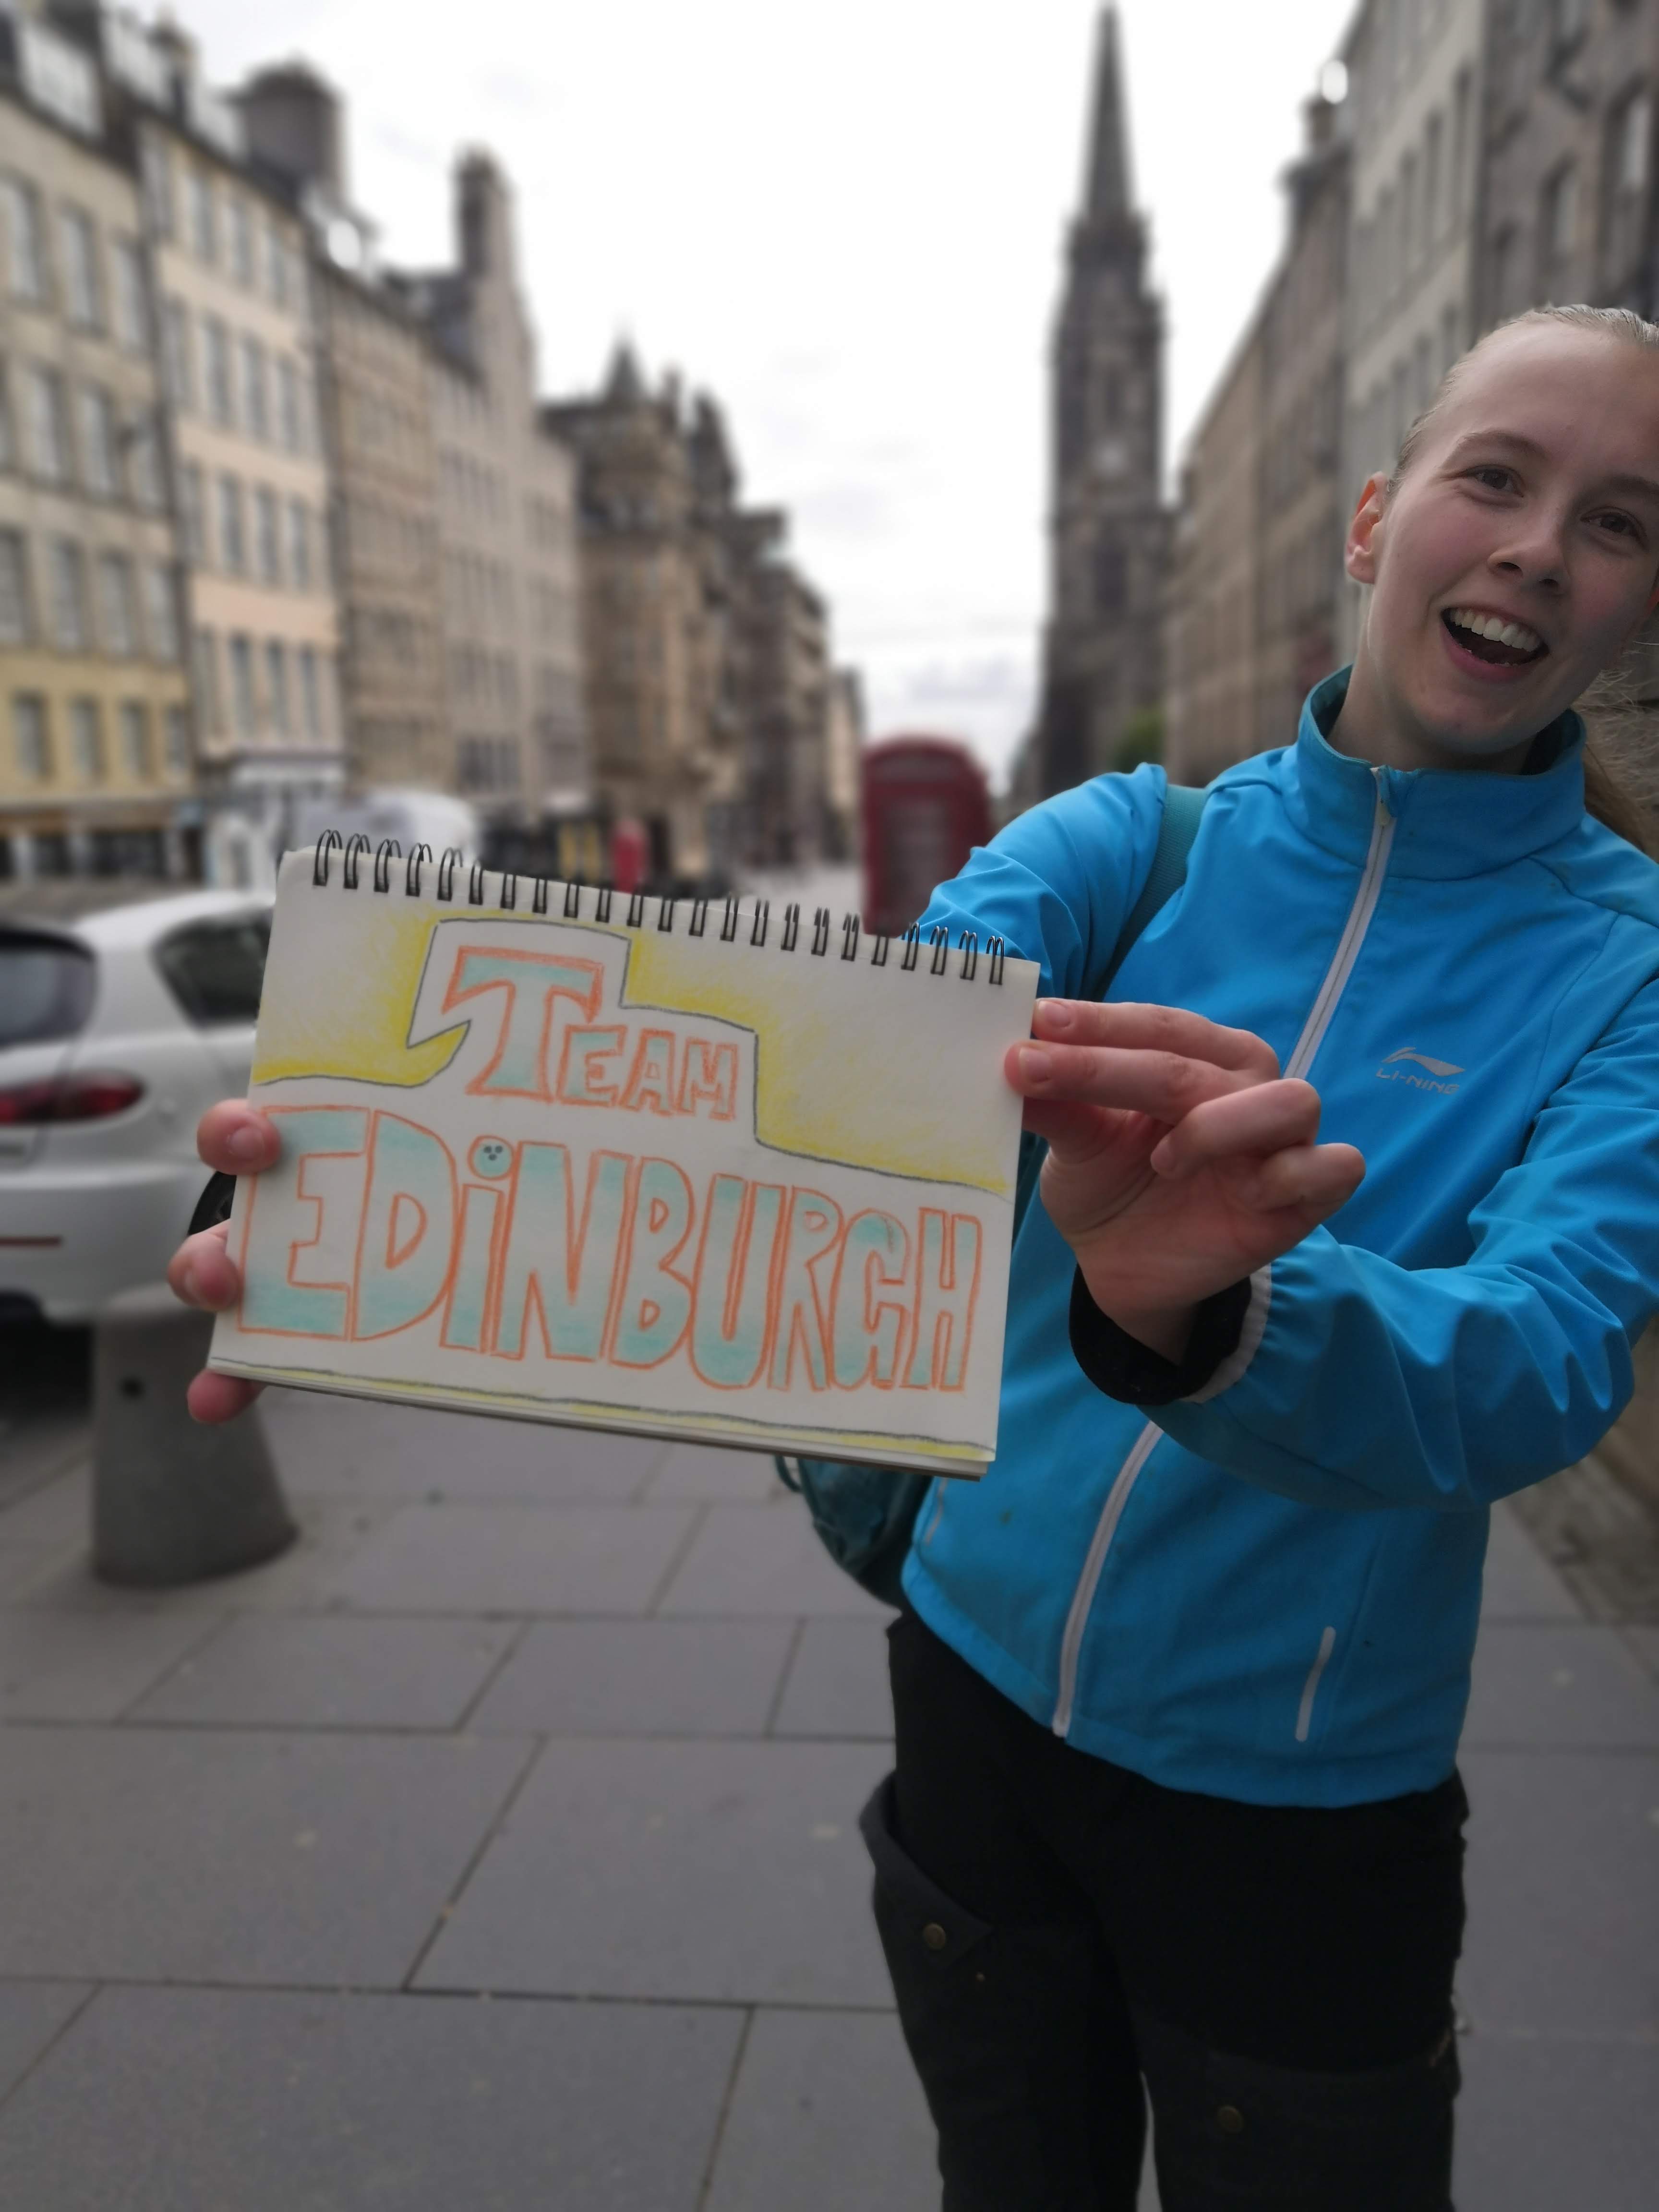 TEAM
EDiNBURGH
LI-NING